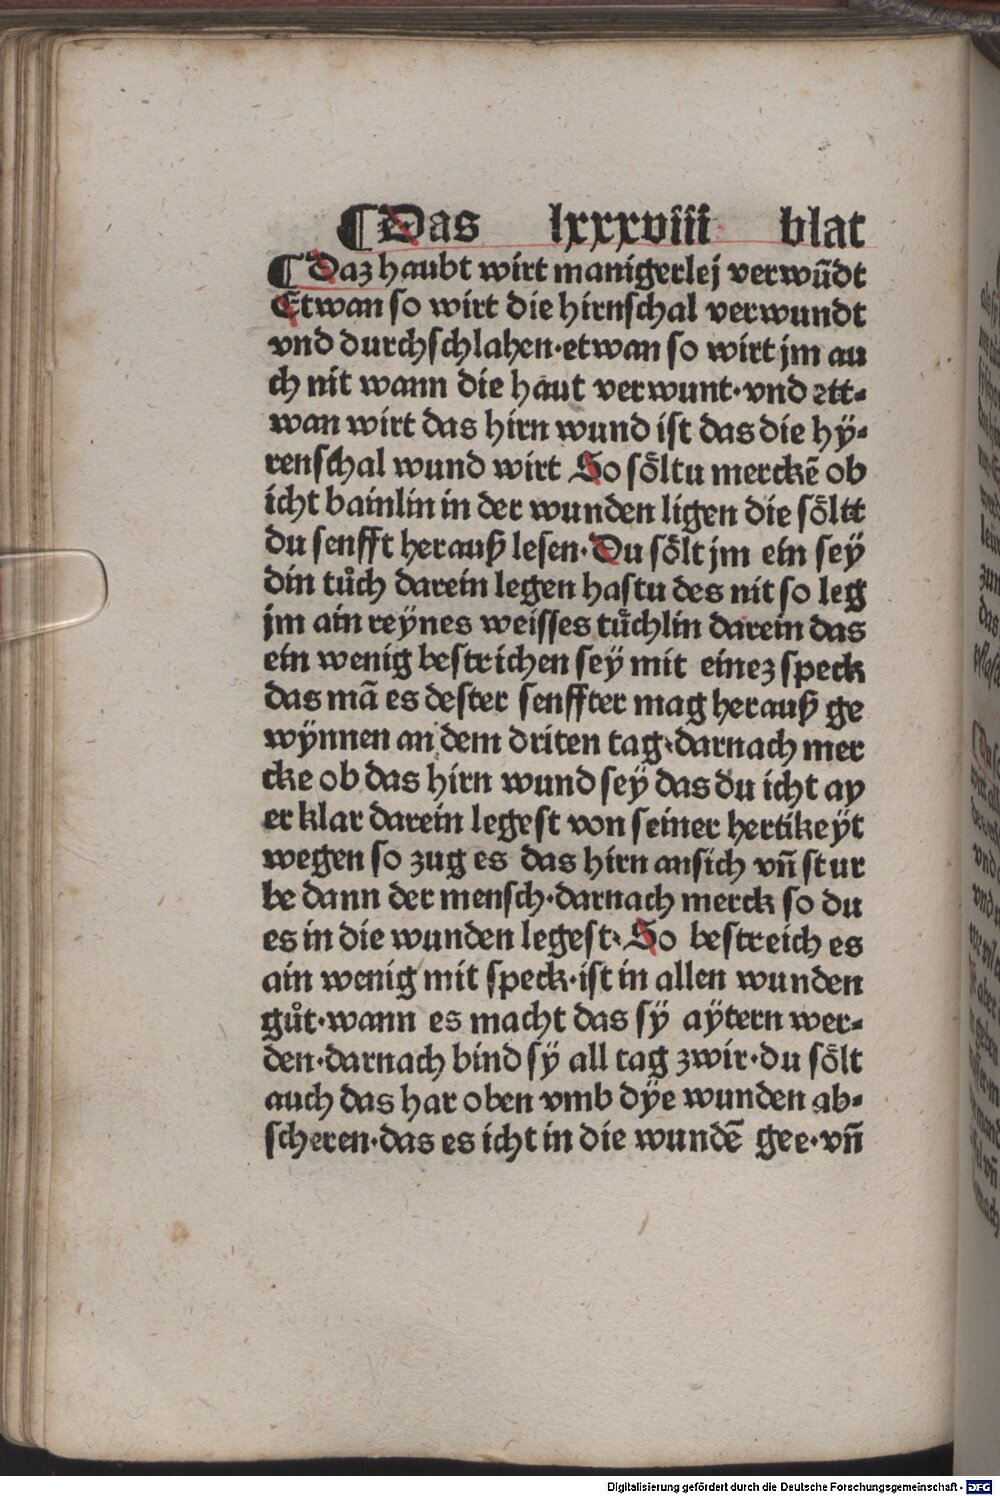 ¶Das lxxxviii blat
¶Daz haubt wirt manigerlej verwūdt
Etwan so wirt die hirnschal verwundt
vnd durchschlahen·etwan so wirt jm au
ch nit wann die haut verwunt·vnd ett⸗
wan wirt das hirn wund ist das die hÿ⸗
renschal wund wirt So soͤltu merckē ob
icht bainlin in der wunden ligen die soͤltt
du senfft herauß lesen·Du soͤlt jm ein seÿ
din tuͦch darein legen hastu des nit so leg
jm ain reÿnes weisses tuͤchlin darein das
ein wenig bestrichen seÿ mit einez speck
das mā es dester senffter mag herauß ge
wÿnnen an dem driten tag·darnach mer
cke ob das hirn wund seÿ das du icht ay
er klar darein legest von seiner hertikeÿt
wegen so zug es das hirn ansich vn̄ stur
be dann der mensch·darnach merck so du
es in die wunden legest·So bestreich es
ain wenig mit speck·ist in allen wunden
guͦt·wann es macht das sÿ aÿtern wer⸗
den·darnach bind sÿ all tag zwir·du soͤlt
auch das har oben vmb dÿe wunden ab⸗
scheren·das es icht in die wundē gee·vn̄
Digitalisierung gefördert durch die Deutsche Forschungsgemeinschaft - DFG